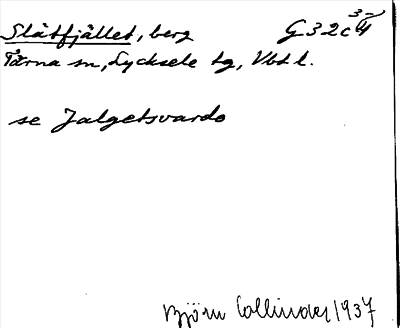 Slätfjället, berg G 32 c 3-4
Tärna sn, Lycksele tg, Vbtl.
se Jalgetsvardo
Björn Collinder 1937